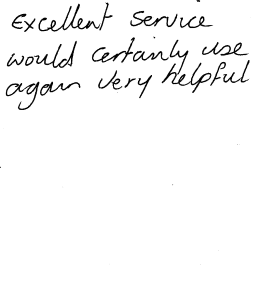 Excellent Service
would certainly use
again very helpful